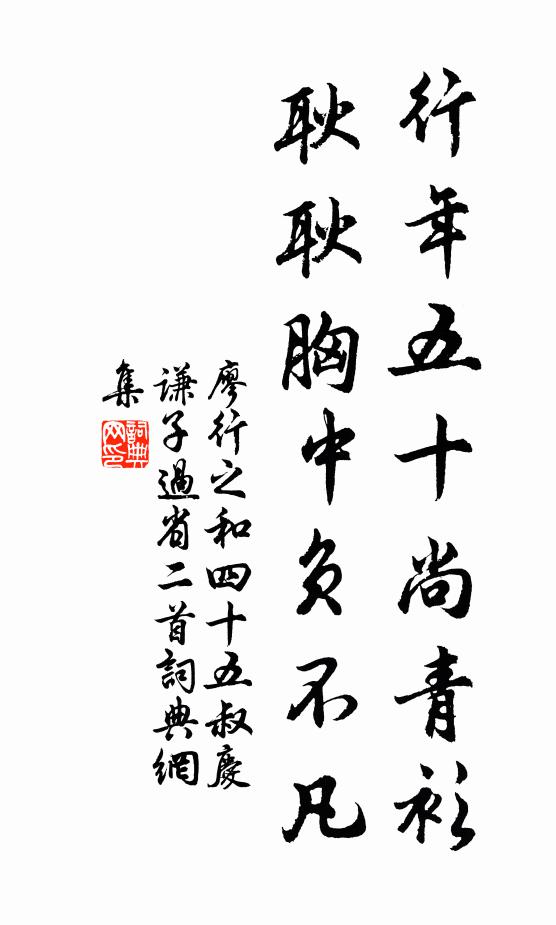 行年五十尚青衫
耿耿胸中負不凡
廖行之和四十五叔慶
謙子過省二首詞典網
集
詞典
网印